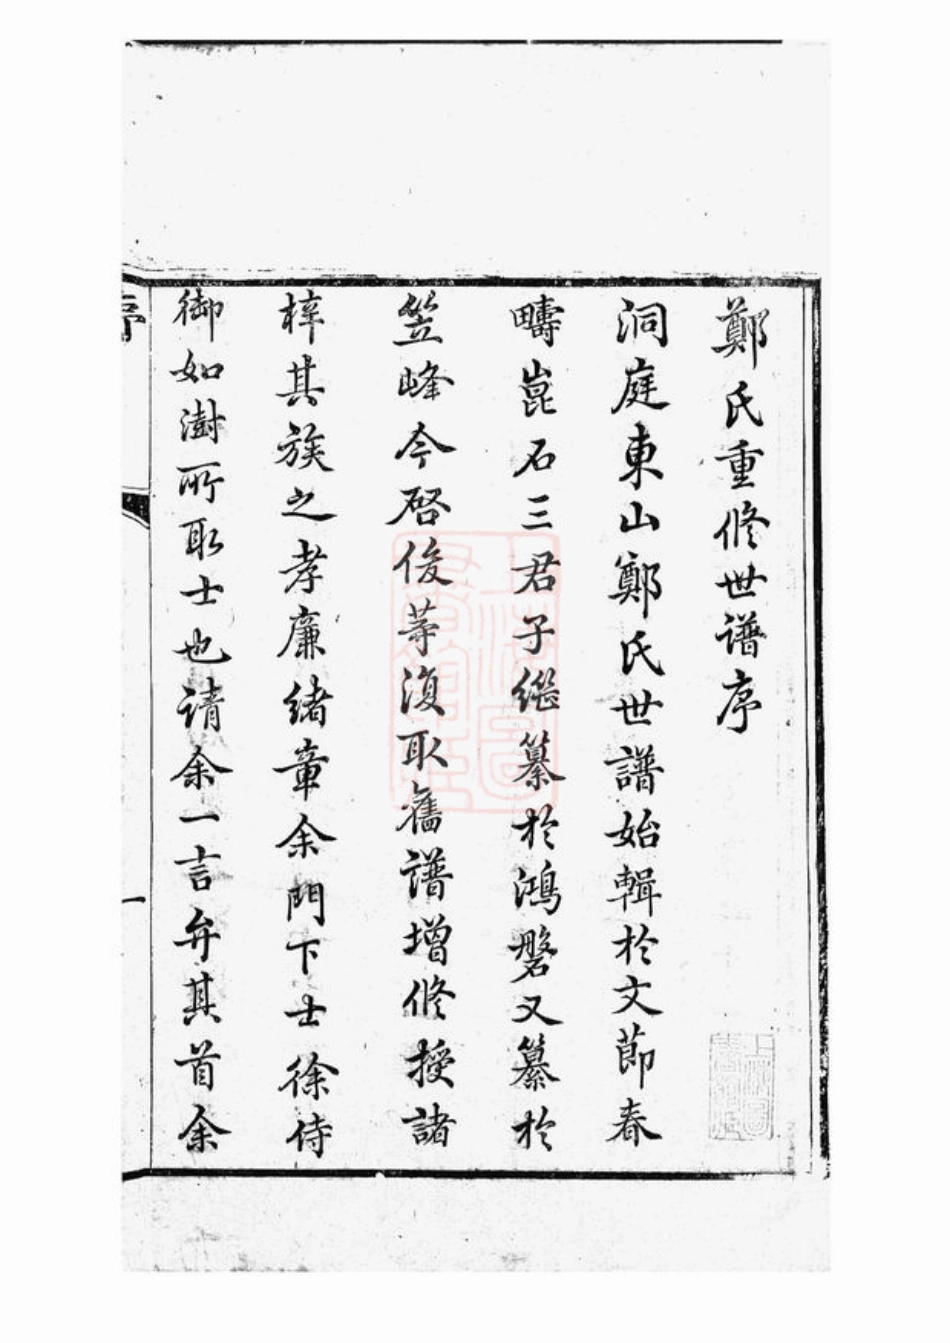 鄭氏重修世譜序
洞庭東山鄭氏世譜始輯於文節春
疇崑石三君子繼纂於鴻磐又纂於
笠峰今啓俊等復取舊譜增修授諸
梓其族之孝廉緒章余門下士徐侍
御如澍所取士也請余一言弁其首余
序
一
上海圖書館藏